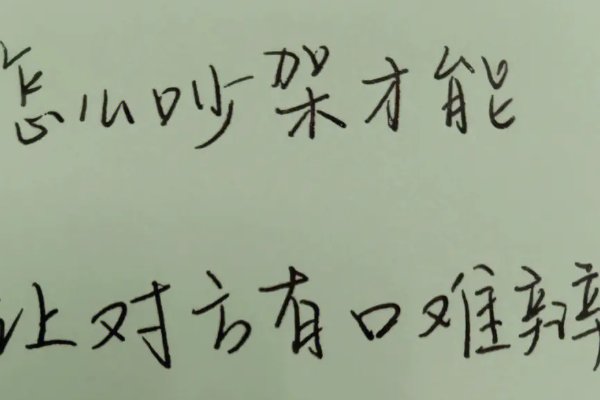 怎么吵架才能
让对方有口难辩